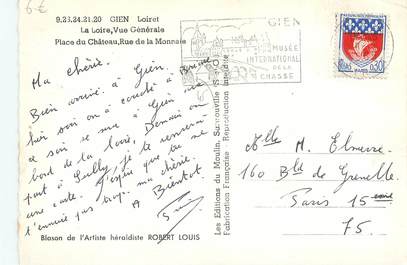 6€
9.23.24.21.20 GIEN Loiret
La Loire, Vue Générale
Place du Château, Rue de la Monnaie
Ma chérie.
Bien arrivé à Gien.
hier soir on a couché à Briare
ce soir se sera à Gien au
bord de la Loire, Demain on
part à Sully, je te renverrai
une carte. J'espère que tu ne
t'ennuie pas trop ma chérie.
A Bientôt
Blason de l'Artiste héraldiste ROBERT LOUIS
Les Editions du Moulin, Sartrouville S.-&-O.
Fabrication Française Reproduction Interdite
GIEN
MUSÉE
INTERNATIONAL
DE LA
CHASSE
PARIS
0,30
Melle M.
160 Bld de Grenelle
Paris 15 eme
75.